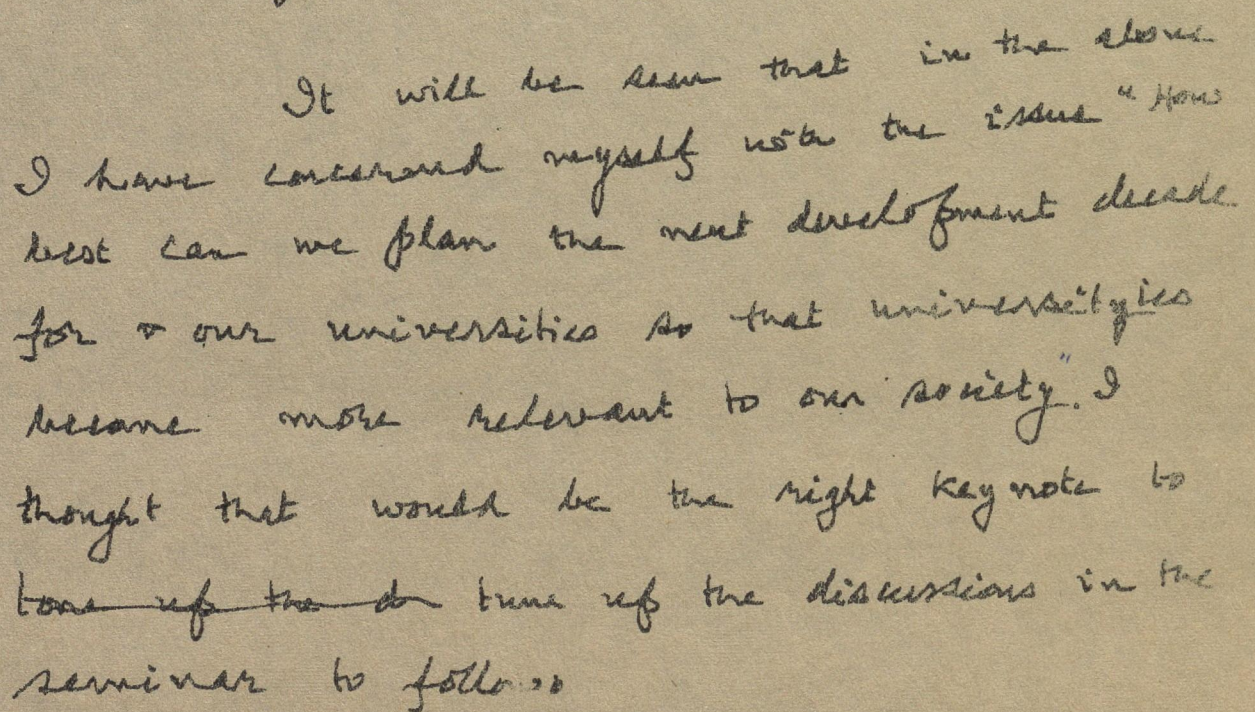 It will be seen that in the above
I have concerned myself with the issue "How
best can we plan the next development decade
for our universities so that universityies
become more relevant to our society". I
thought that would be the right keynote to
tone up the d tune up the discussions in the
seminar to follow